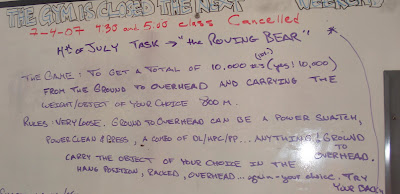 THE GYM IS CLOSED THE NEXT WEEKEND
7-4-07 9:30 and 5:00 class Cancelled
4th of JULY TASK → "the ROVING BEAR" *
THE GAME: TO GET A TOTAL OF 10,000 (yes! 10,000)
FROM THE GROUND TO OVERHEAD AND CARRYING THE
WEIGHT/OBJECT OF YOUR CHOICE 800 M.
RULES: VERY LOOSE. GROUND TO OVERHEAD CAN BE A POWER SNATCH,
POWER CLEAN & PRESS, A COMBO OF DL/HPC/PP... ANYTHING! GROUND
TO OVERHEAD.
CARRY THE OBJECT OF YOUR CHOICE IN THE
HANG POSITION, RACKED, OVERHEAD... again - your choice. TRY
YOUR BACK